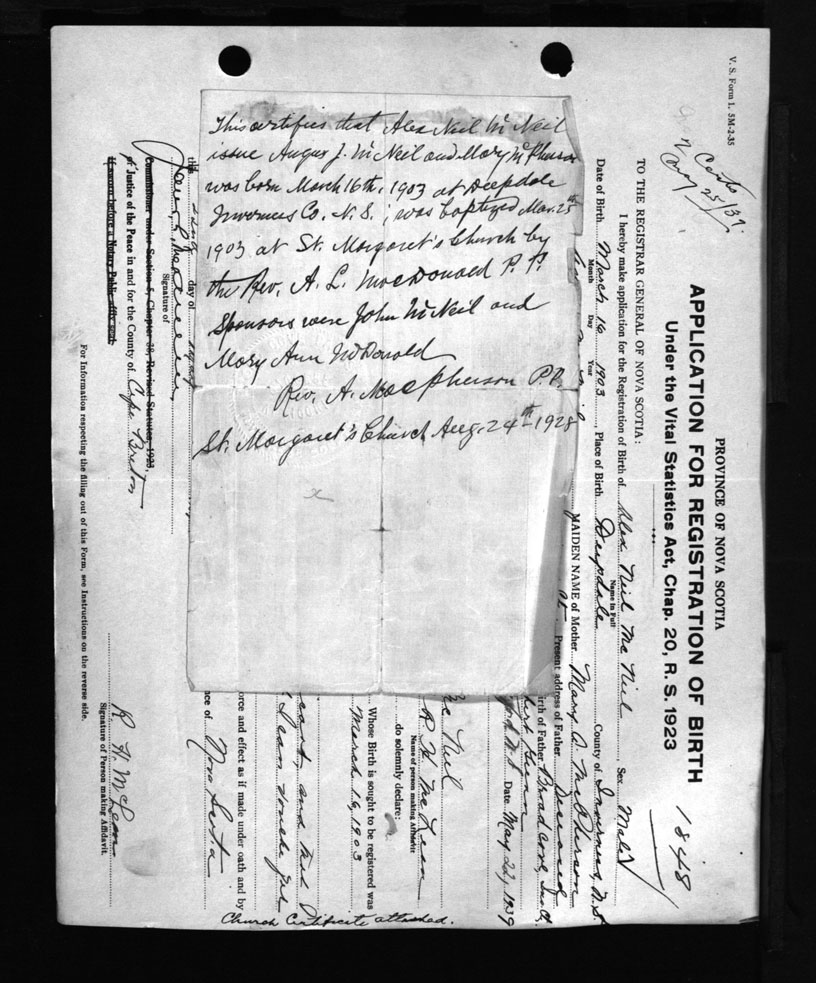 This certifies that Alex Neil McNeil
issue Angus J. McNeil and Mary McPherson
was born March 16th, 1903 at Deepdale
Inverness Co. N.S.; was baptized Mar. 25th
1903 at St. Margaret's Church by
the Rev. A. L. MacDonald P.P.
Sponsors were John McNeil and
Mary Ann McDonald
Rev. A. Macpherson P.P.
St. Margaret's Church Aug. 24th 1928
V. S. Form 1. 5M-2-35
1848
PROVINCE OF NOVA SCOTIA
APPLICATION FOR REGISTRATION OF BIRTH
Under the Vital Statistics Act, Chap. 20, R. S. 1923
TO THE REGISTRAR GENERAL OF NOVA SCOTIA:
I hereby make application for the Registration of Birth of Alex Neil McNeil Sex Male
Name in Full
Date of Birth March 16 1903, Place of Birth Deepdale County of Inverness, N.S.
Month Day Year
MAIDEN NAME of Mother Mary A. McPherson
Present address of Father Deceased
Birth of Father Broad Cove,
Date May 22, 1939
Mc Neil
R H McLean
Name of person making Affidavit
do solemnly declare:
Whose Birth is sought to be registered was
March 16, 1903
and
orce and effect as if made under oath and by
nce of Nova Scotia
Church Certificate attached.
this day of
Signature of
Commissioner under Section 5, Chapter 38, Revised Statutes, 1923,
of Justice of the Peace in and for the County of Cape Breton
If sworn before a Notary Public affix seal.
R. H. McLean
Signature of Person making Affidavit.
For Information respecting the filling out of this Form, see Instructions on the reverse side.